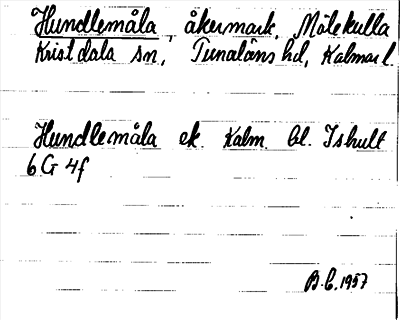 Hundlemåla, åkermark, Målekulla
Kristdala sn, Tunaläns hd, Kalmar l.
Hundlemåla ek. Kalm. bl. Ishult
6 G 4f
B.C. 1957